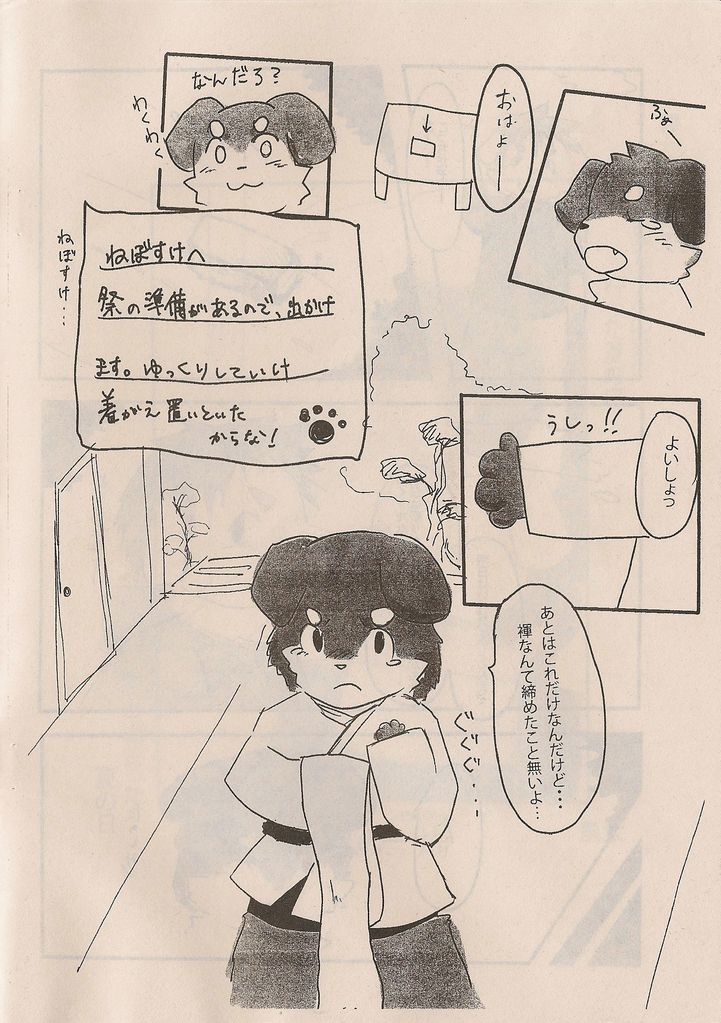 ふぁ
おはよー
なんだろ?
わくわく
ねぼすけへ
祭の準備があるので、出かけ
ます。ゆっくりしていけ
着がえ置いといた
からな!
ねぼすけ…
よいしょっ
うしっ!!
あとはこれだけなんだけど・・・
褌なんて締めたこと無いよ…
ぐぐぐ・・・